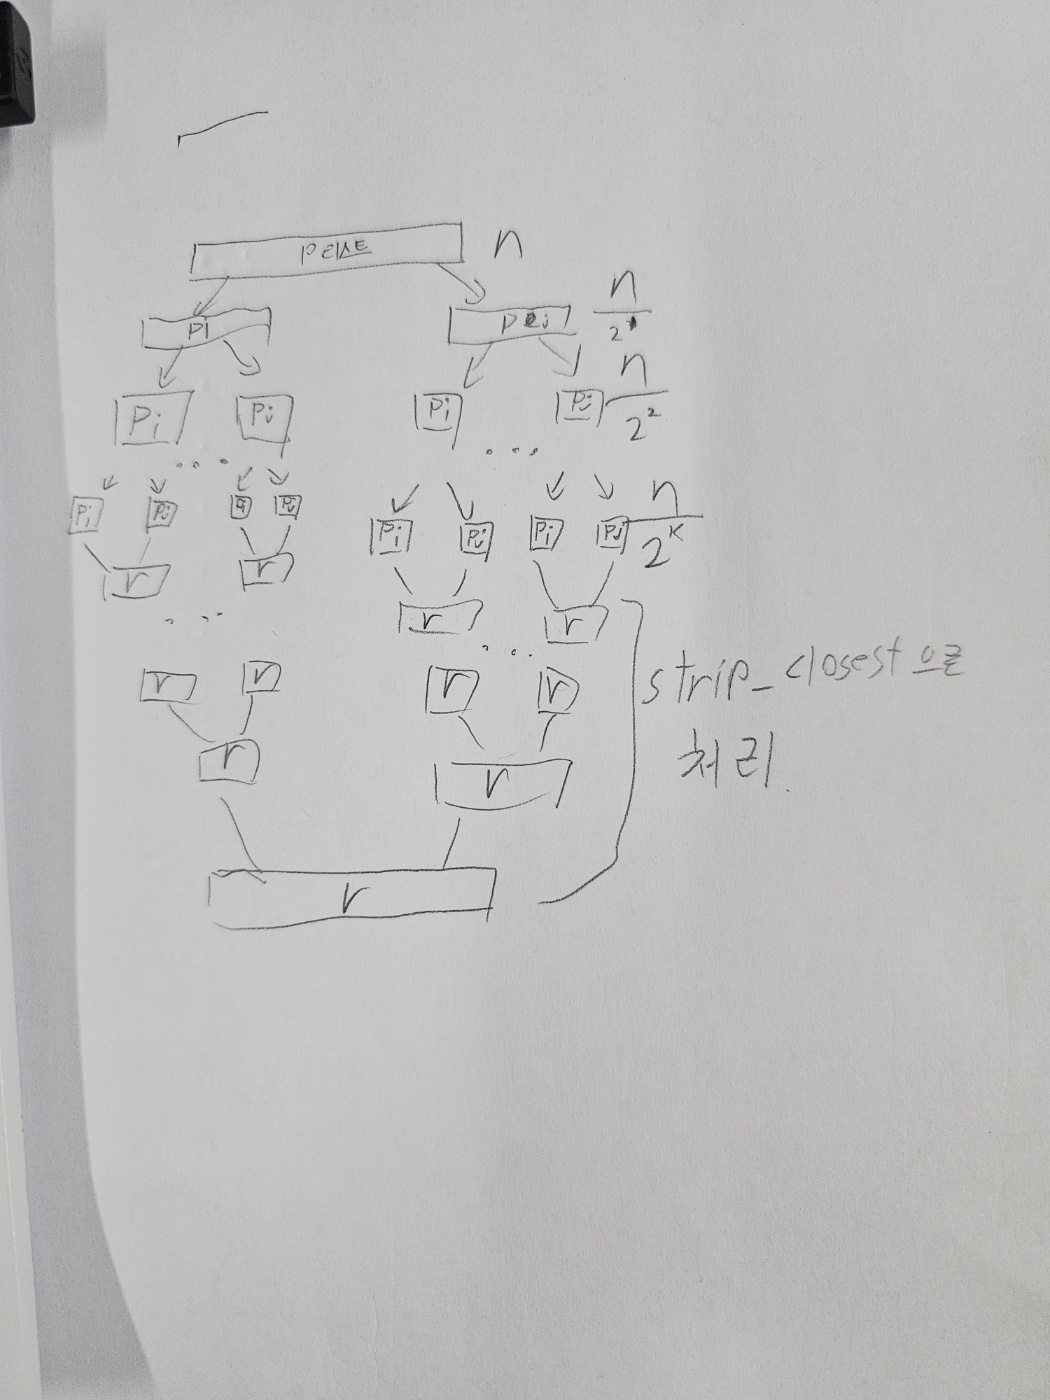 P리스트 n
Pi Pj n/2¹
Pi Pj Pi Pj n/2²
... ...
Pi Pj Pi Pj Pi Pj Pi Pj n/2ᴷ
r r r r
... ...
r r r r
strip_closest으로
처리.
r r
r